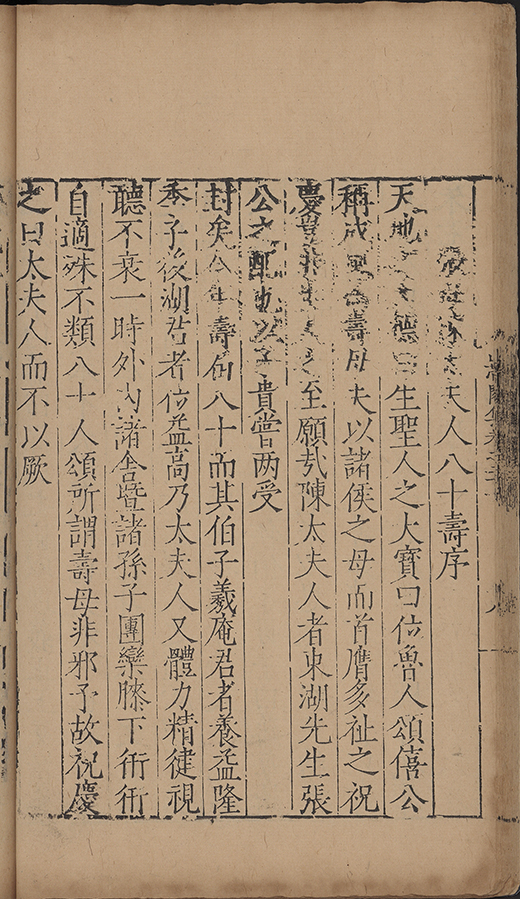 夫人八十壽序
天地德曰生聖人之大寶曰位魯人頌僖公
稱成風壽母夫以諸侯之母而首膺多祉之祝
慶至願哉陳太夫人者東湖先生張
公之配也以子貴嘗两受
封矣今年壽届八十而其伯子羲庵君者養益隆
季子後湖君者位益高乃太夫人又體力精健視
聽不衰一時外內諸舍暨諸孫子團欒膝下衎衎
自適殊不類八十人頌所謂壽母非邪予故祝慶
之曰太夫人而不以厥